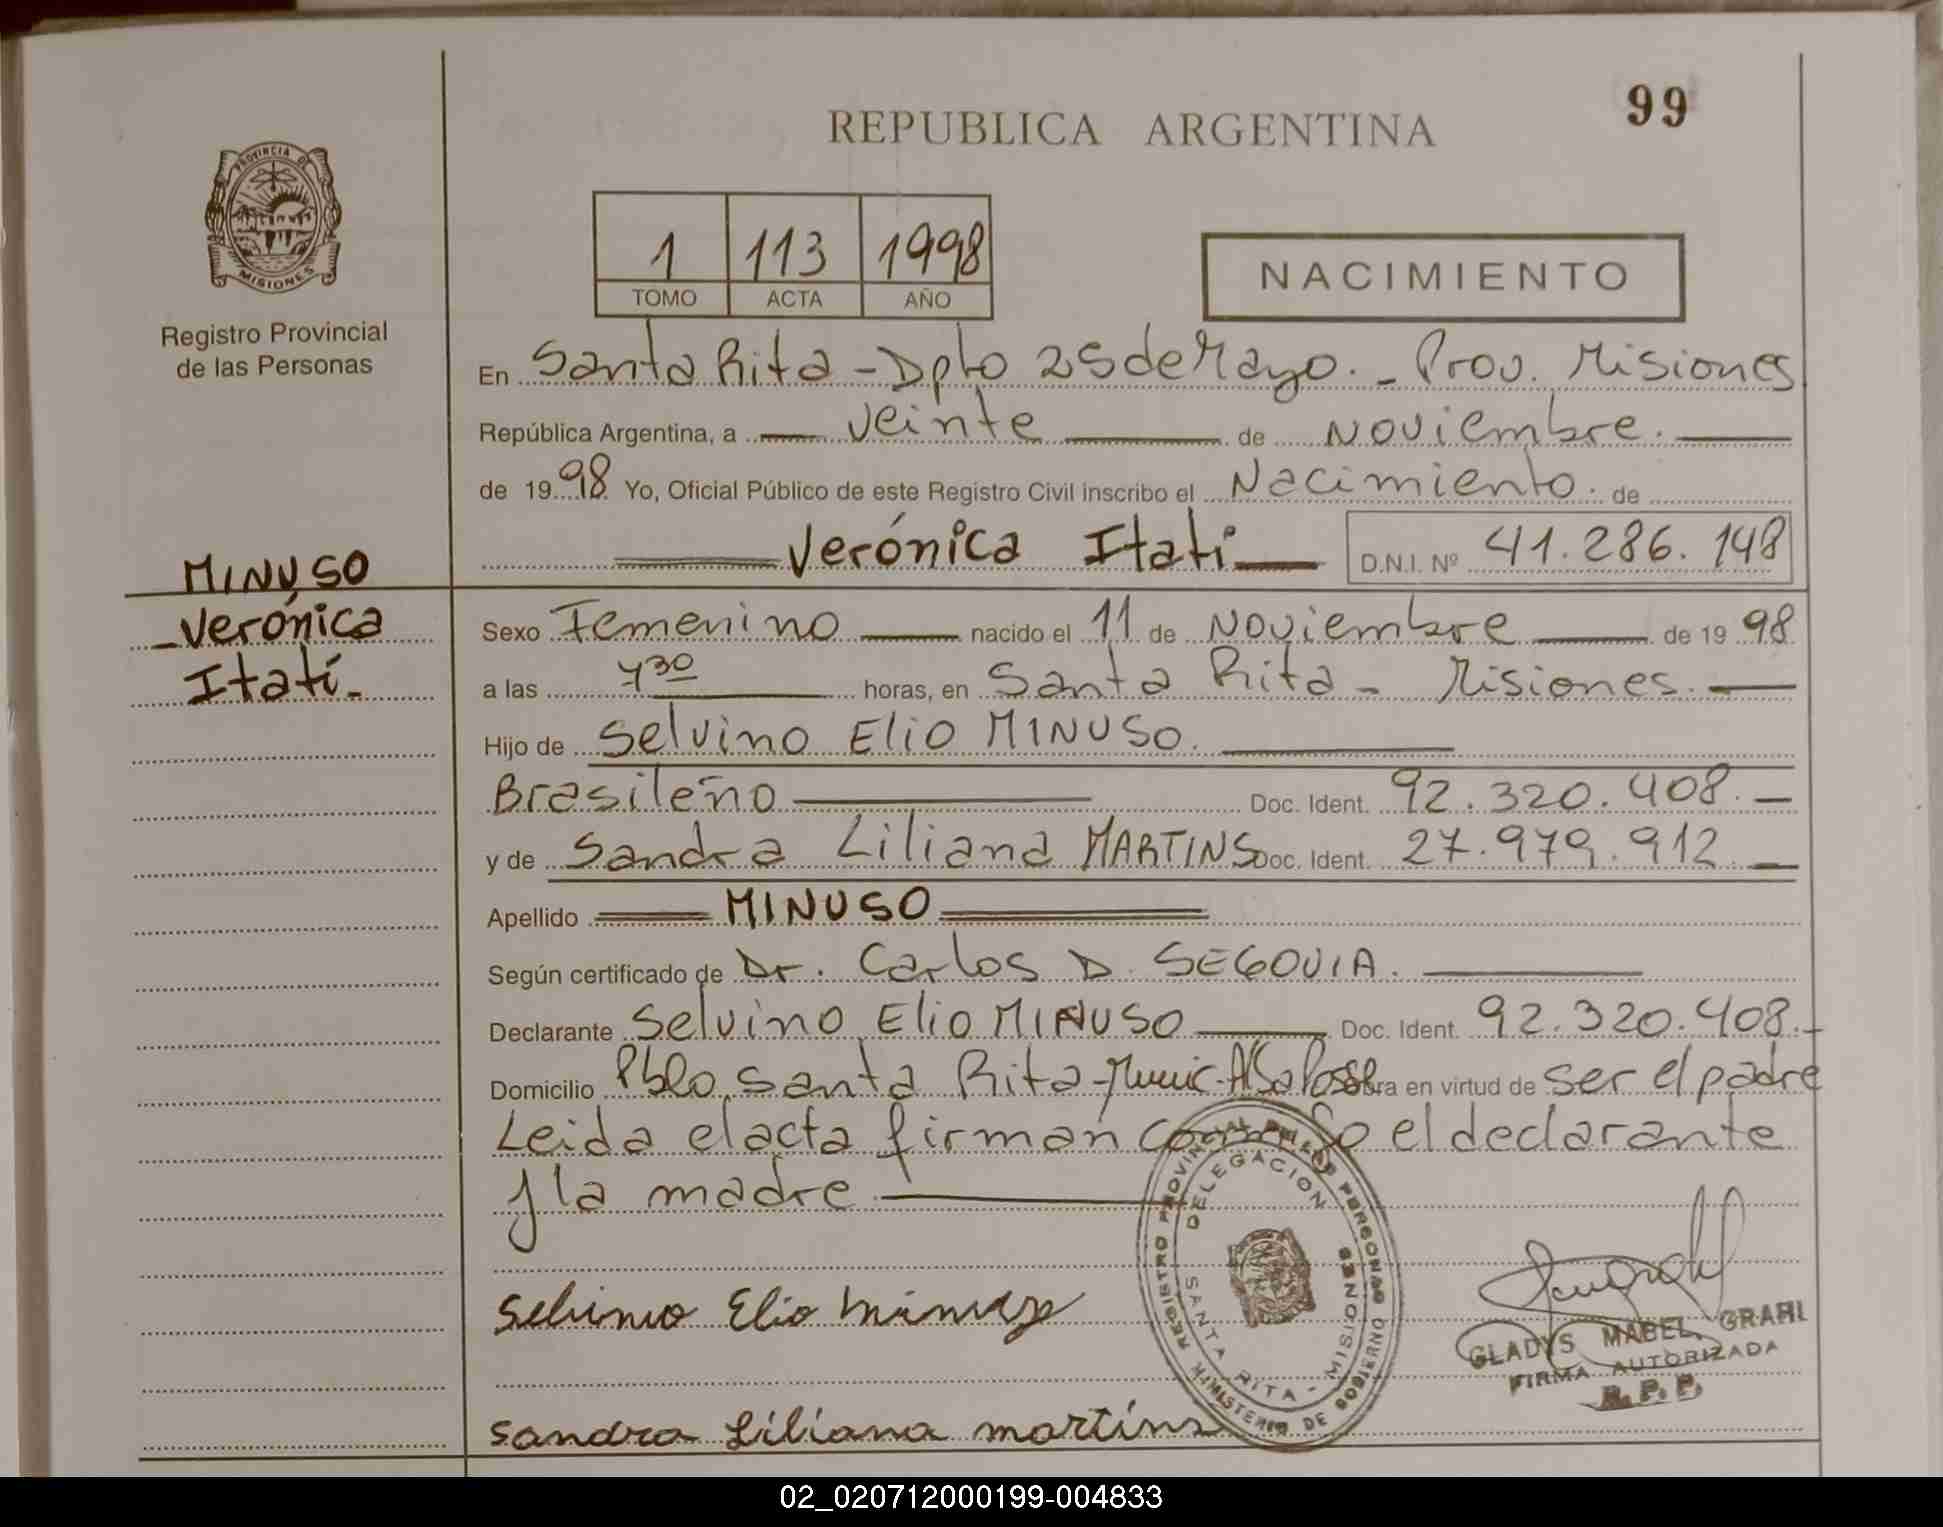 99
REPUBLICA ARGENTINA
PROVINCIA DE
MISIONES
Registro Provincial
de las Personas
1 113 1998
TOMO ACTA AÑO
NACIMIENTO
En Santa Rita - Dpto 25 de Mayo. - Prov. Misiones
República Argentina, a veinte de Noviembre.
de 1998 Yo, Oficial Público de este Registro Civil inscribo el Nacimiento. de
Verónica Itatí D.N.I. Nº 41.286.148
MINUSO
Verónica
Itatí.-
Sexo Femenino nacido el 11 de Noviembre de 1998
a las 7 30 horas, en Santa Rita - Misiones.
Hijo de Selvino Elio MINUSO.
Brasileño Doc. Ident. 92.320.408.-
y de Sandra Liliana MARTINS Doc. Ident. 27.979.912.-
Apellido MINUSO
Según certificado de Dr. Carlos D. SEGOVIA.
Declarante Selvino Elio MINUSO Doc. Ident. 92.320.408.-
Domicilio Pblo Santa Rita - Munic. Posse Obra en virtud de ser el padre
Leida el acta firman el declarante
y la madre
Selvino Elio
Sandra Liliana martins
REGISTRO PROVINCIAL DE LAS PERSONAS
MINISTERIO DE GOBIERNO
DELEGACION
SANTA RITA - MISIONES
GLADYS MABEL GRAHL
FIRMA AUTORIZADA
R.P.P.
02_020712000199-004833